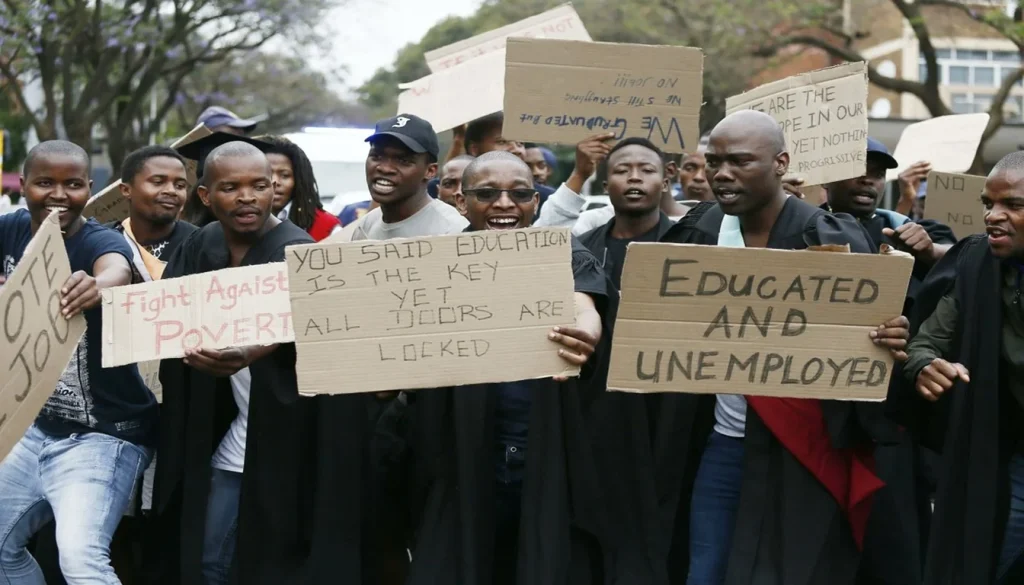 WE GRADUATED BUT
WE STILL STRUGGLING
WE ARE THE
OPE IN OUR
YET NOTHIN
PROGRESSIVE
NO
NO
OTE
Fight Agaist
POVERT
YOU SAID EDUCATION
IS THE KEY
YET
ALL DOORS ARE
LOCKED
EDUCATED
AND
UNEMPLOYED